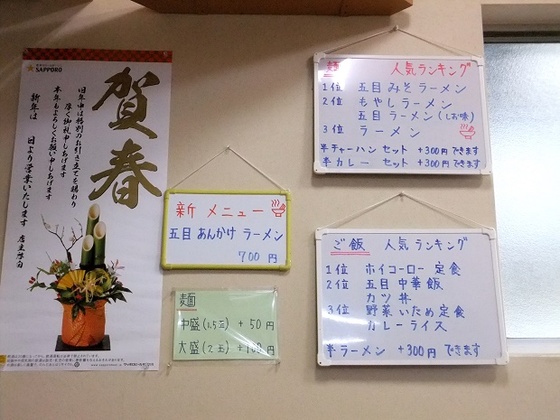 SAPPORO
賀春
旧年中は格別のお引き立てを賜わり
厚く御礼申しあげます
本年もよろしくお願い申しあげます
新年は 日より営業いたします 店主敬白
新メニュー
五目あんかけラーメン
700円
麺
中盛(1.5玉) +50円
大盛(2玉) +100円
麺 人気ランキング
1位 五目みそラーメン
2位 もやしラーメン
五目ラーメン(しお味)
3位 ラーメン
半チャーハン セット +300円できます
半カレー セット +300円できます
ご飯 人気ランキング
1位 ホイコーロー定食
2位 五目中華飯
カツ丼
3位 野菜いため定食
カレーライス
半ラーメン +300円できます